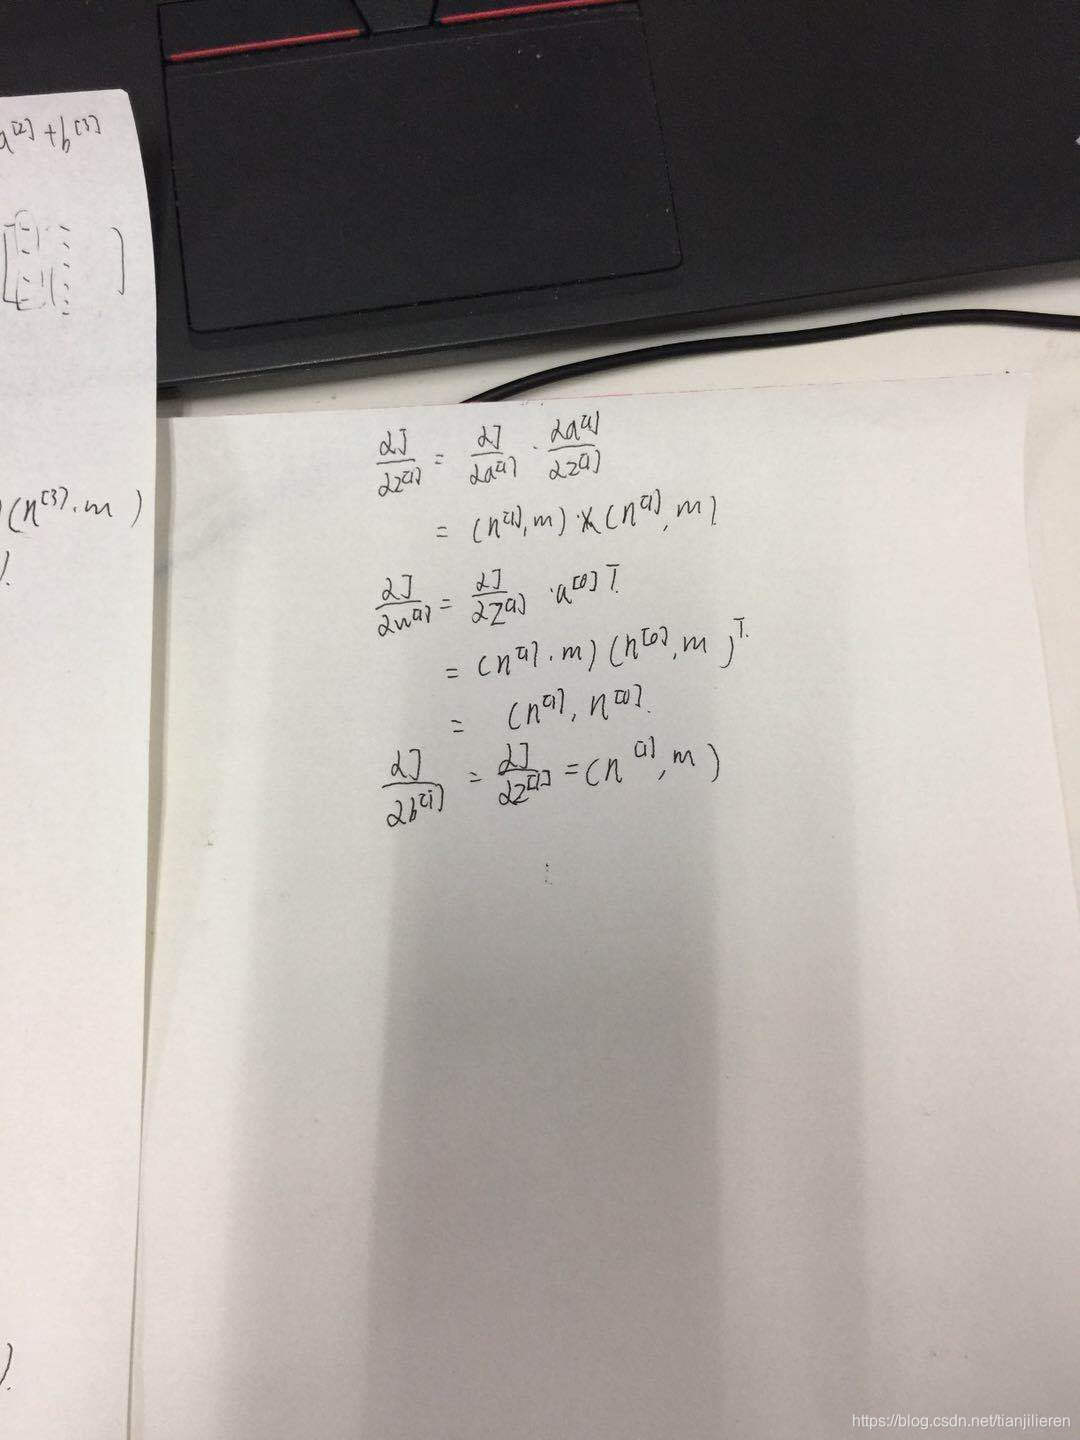 a^[2] + b^[3]
(n^[3], m)
∂J/∂z^[1] = ∂J/∂a^[1] · ∂a^[1]/∂z^[1]
= (n^[1], m) * (n^[1], m)
∂J/∂w^[1] = ∂J/∂z^[1] · a^[0]T.
= (n^[1], m) (n^[0], m)^T.
= (n^[1], n^[0].
∂J/∂b^[1] = ∂J/∂z^[1] = (n^[1], m)
https://blog.csdn.net/tianjilieren